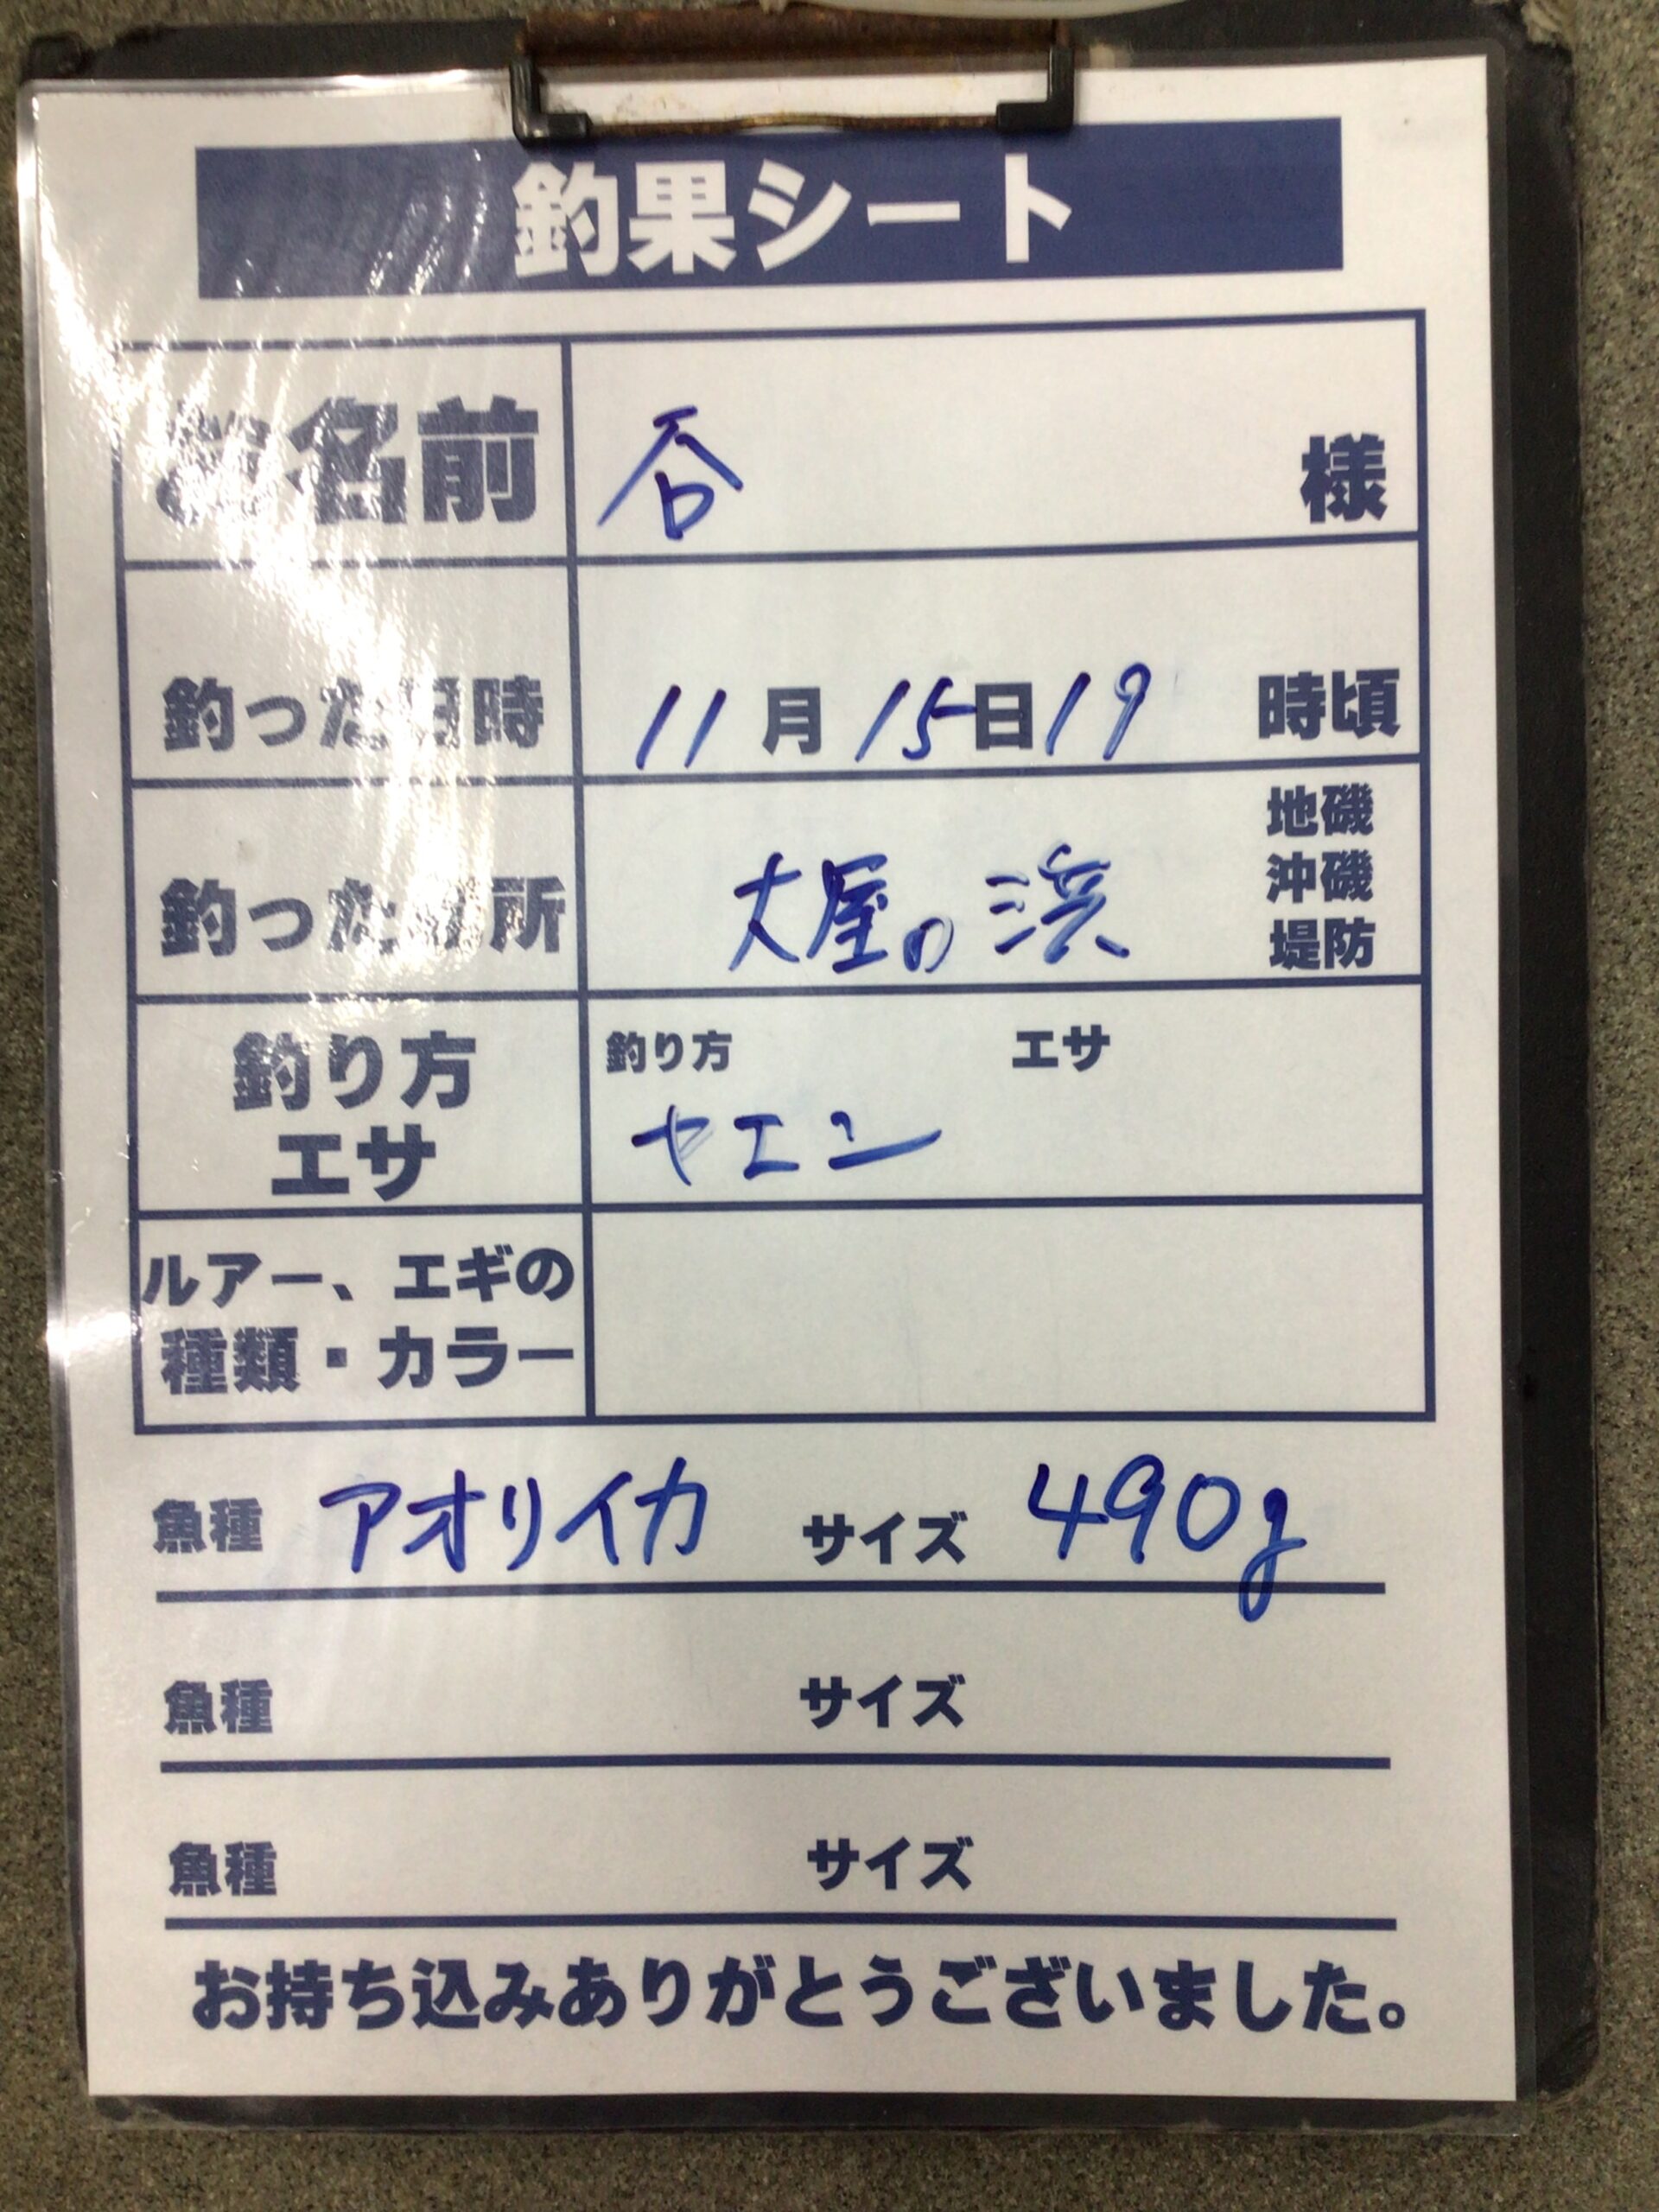 釣果シート
お名前 谷 様
釣った日時 11月15日19時頃
釣った場所 大屋の浜 地磯
沖磯
堤防
釣り方 釣り方 エサ
エサ ヤエン
ルアー、エギの
種類・カラー
魚種 アオリイカ サイズ 490g
魚種 サイズ
魚種 サイズ
お持ち込みありがとうございました。